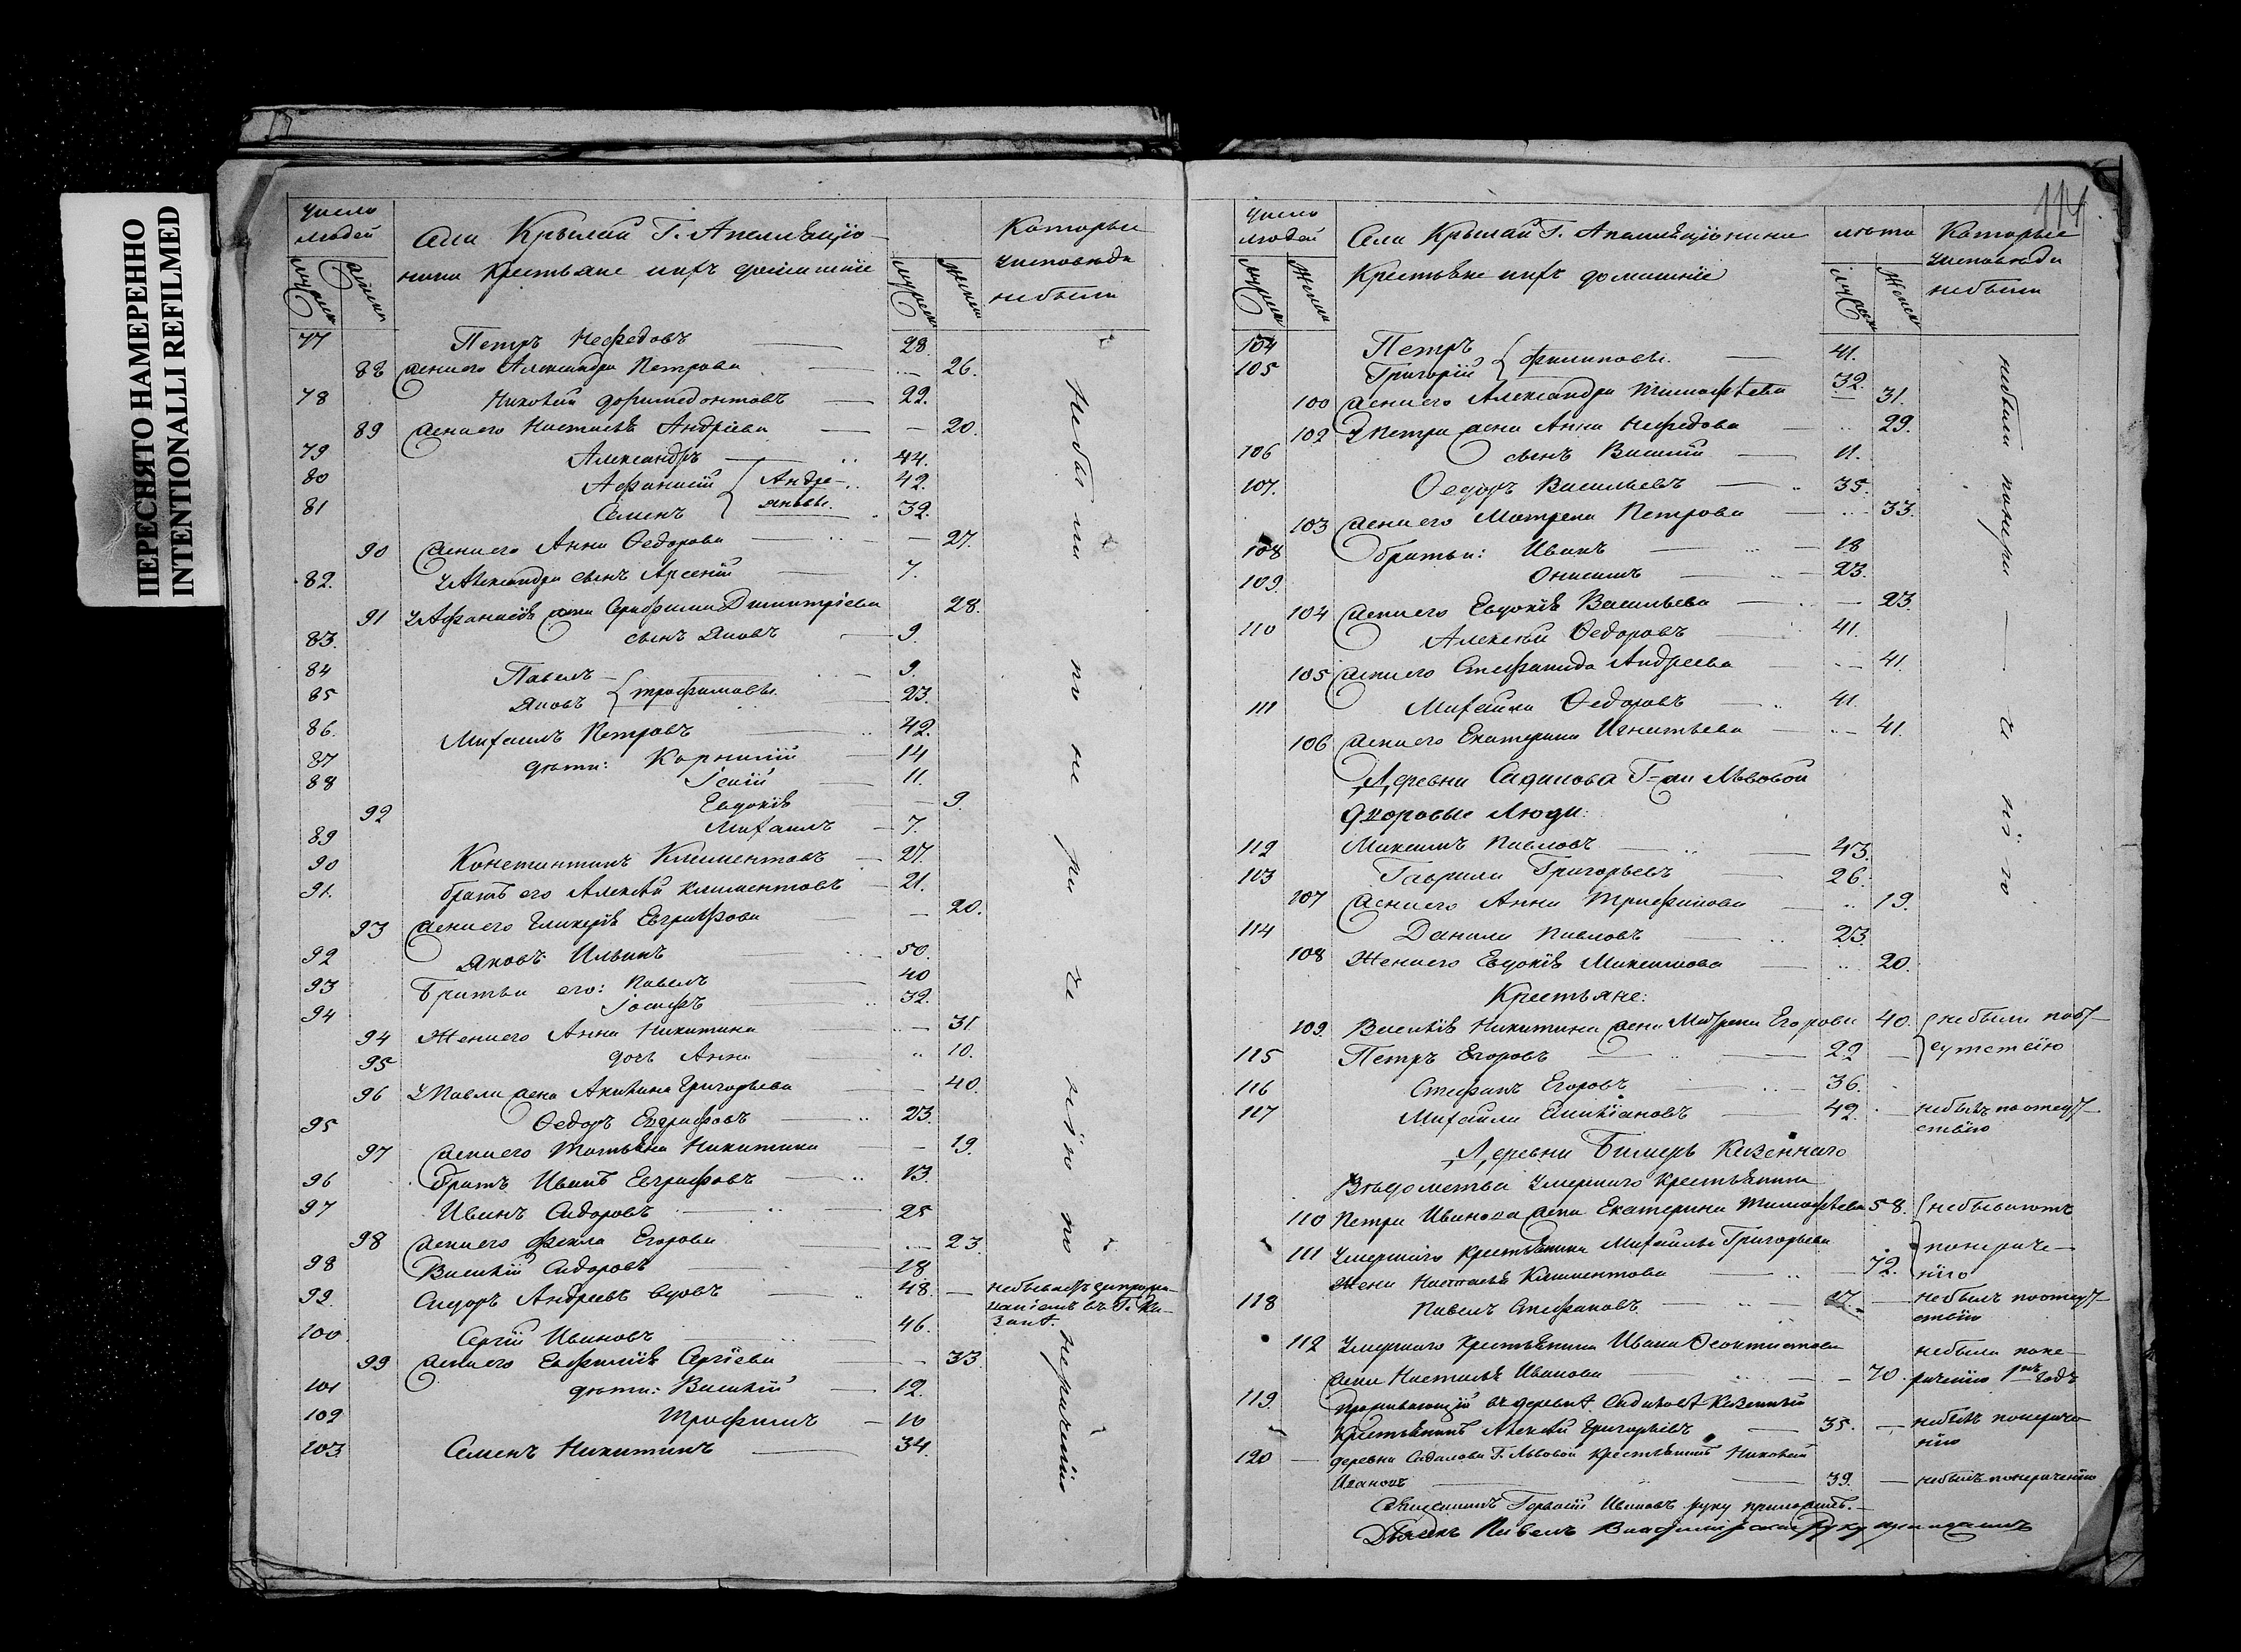 ПЕРЕСНЯТО НАМЕРЕННО
INTENTIONALLI REFILMED
Число людей
мужеск женск
Села Крылай Г. Апелляціо-
нина Крестьяне ихъ домашніе
мужеск женск
Которые
Исповѣди
небыли
77 Петръ Нефедовъ 28.
88 жена его Александра Петрова 26.
78 22.
89 жена его Настасья Андріева 20.
79 Александръ 44.
80 Афанасій Андре- 42.
81 Семенъ яновы. 32.
90 жена его Анна Ѳедорова 27.
82. У Александра сынъ Арсеній 7.
91 У Афанасія жена Серафима Димитріева 28.
83. сынъ Яковъ 9.
84 Павелъ 9.
85 Яковъ трофимовы. 23.
86. Михаилъ Петровъ 42.
87 дѣти: Корнилій 14
88 11.
92 Евдокія 9.
89 Михаилъ 7.
90 Константинъ Климентовъ 27.
91. братъ его Алексѣй климентовъ 21.
93 жена его Гликерія Евграфова 20.
92 Яковъ Ильинъ 50.
93 Братья его: Павелъ 40
94 Іосифъ 32.
94 Жена его Анна Никитина 31
95 дочь Анна 10.
96 У Павла жена Акилина Григорьева 40.
95 Ѳедоръ Евграфовъ 23.
97 жена его Татьяна Никитина 19.
96 братъ Иванъ Евграфовъ 13.
97 Иванъ Сидоровъ 25
98 жена его Фекла Егорова 23.
98 Василій Сидоровъ 18.
99. Сидоръ Андреевъ вдовъ 48.
100 Сергій Ивановъ 46.
99 жена его Евфимія Сергіева 33.
101 дѣти: Василій 12.
102 Трофимъ 10
103 Семенъ Никитинъ 34.
небыли по нераченію
114
Число
людей
мужеск женск
Села Крылай Г. Апелляціонина
Крестьяне ихъ домашніе
лѣта
мужеск женск
Которые
Исповѣди
небыли
104 Петръ 41.
105 Григорій филиповы. 32.
100 жена его Александра Тимофѣева 31.
102 У Петра жена Анна Нефедова 29.
106 сынъ Василій 11.
107. Ѳедоръ Васильевъ 35.
103 жена его Матрена Петрова 33.
108 братья: Иванъ 18
109. Онисимъ 23.
104 жена его Евдокія Васильева 23
110 Алексѣй Ѳедоровъ 41.
105 жена его Степанида Андреева 41.
111 Михайла Ѳедоровъ 41.
106 жена его Екатерина Игнатьева 41.
небыли понераченію
Деревни Садилова Г-жи Львовой
дворовые Люди:
112 Максимъ Павловъ 43.
103 Гаврила Григорьевъ 26.
107 жена его Анна Трифанова 19.
114 Данила Павловъ 23.
108 Жена его Евдокія Максимова 20.
Крестьяне:
109. Василія Никитина жена Матрена Егорова 40. небыли поот-
115 Петръ Егоровъ 22 сутствію
116 Стефанъ Егоровъ 36.
117 Михайла Емиліановъ 42. небылъ поотсут-
ствію
Деревни Бимерь Казеннаго
Вѣдомства Умершаго крестьянина
110 Петра Иванова жена Екатерина Тимофѣева 58. небываютъ
111 Умершаго крестьянина Михайлы Григорьева понераче-
Жена Настасья Климентова 72. нію
118 Павелъ Стефановъ 27. небылъ поотсут-
ствію
112 Умершаго Крестьянина Ивана Ѳеоктистова небыла поне-
жена Настасья Иванова 70. раченію годъ
119 проживающій въ деревнѣ Садиловѣ Казенный
Крестьянинъ Алексѣй Григорьевъ 35. небылъ понераче-
нію
120 деревни Садилова Г. Львовой Крестьянинъ
Ивановъ 39. небылъ понераченію
Священникъ Ивановъ руку приложилъ.
Дьячекъ Павелъ руку приложилъ